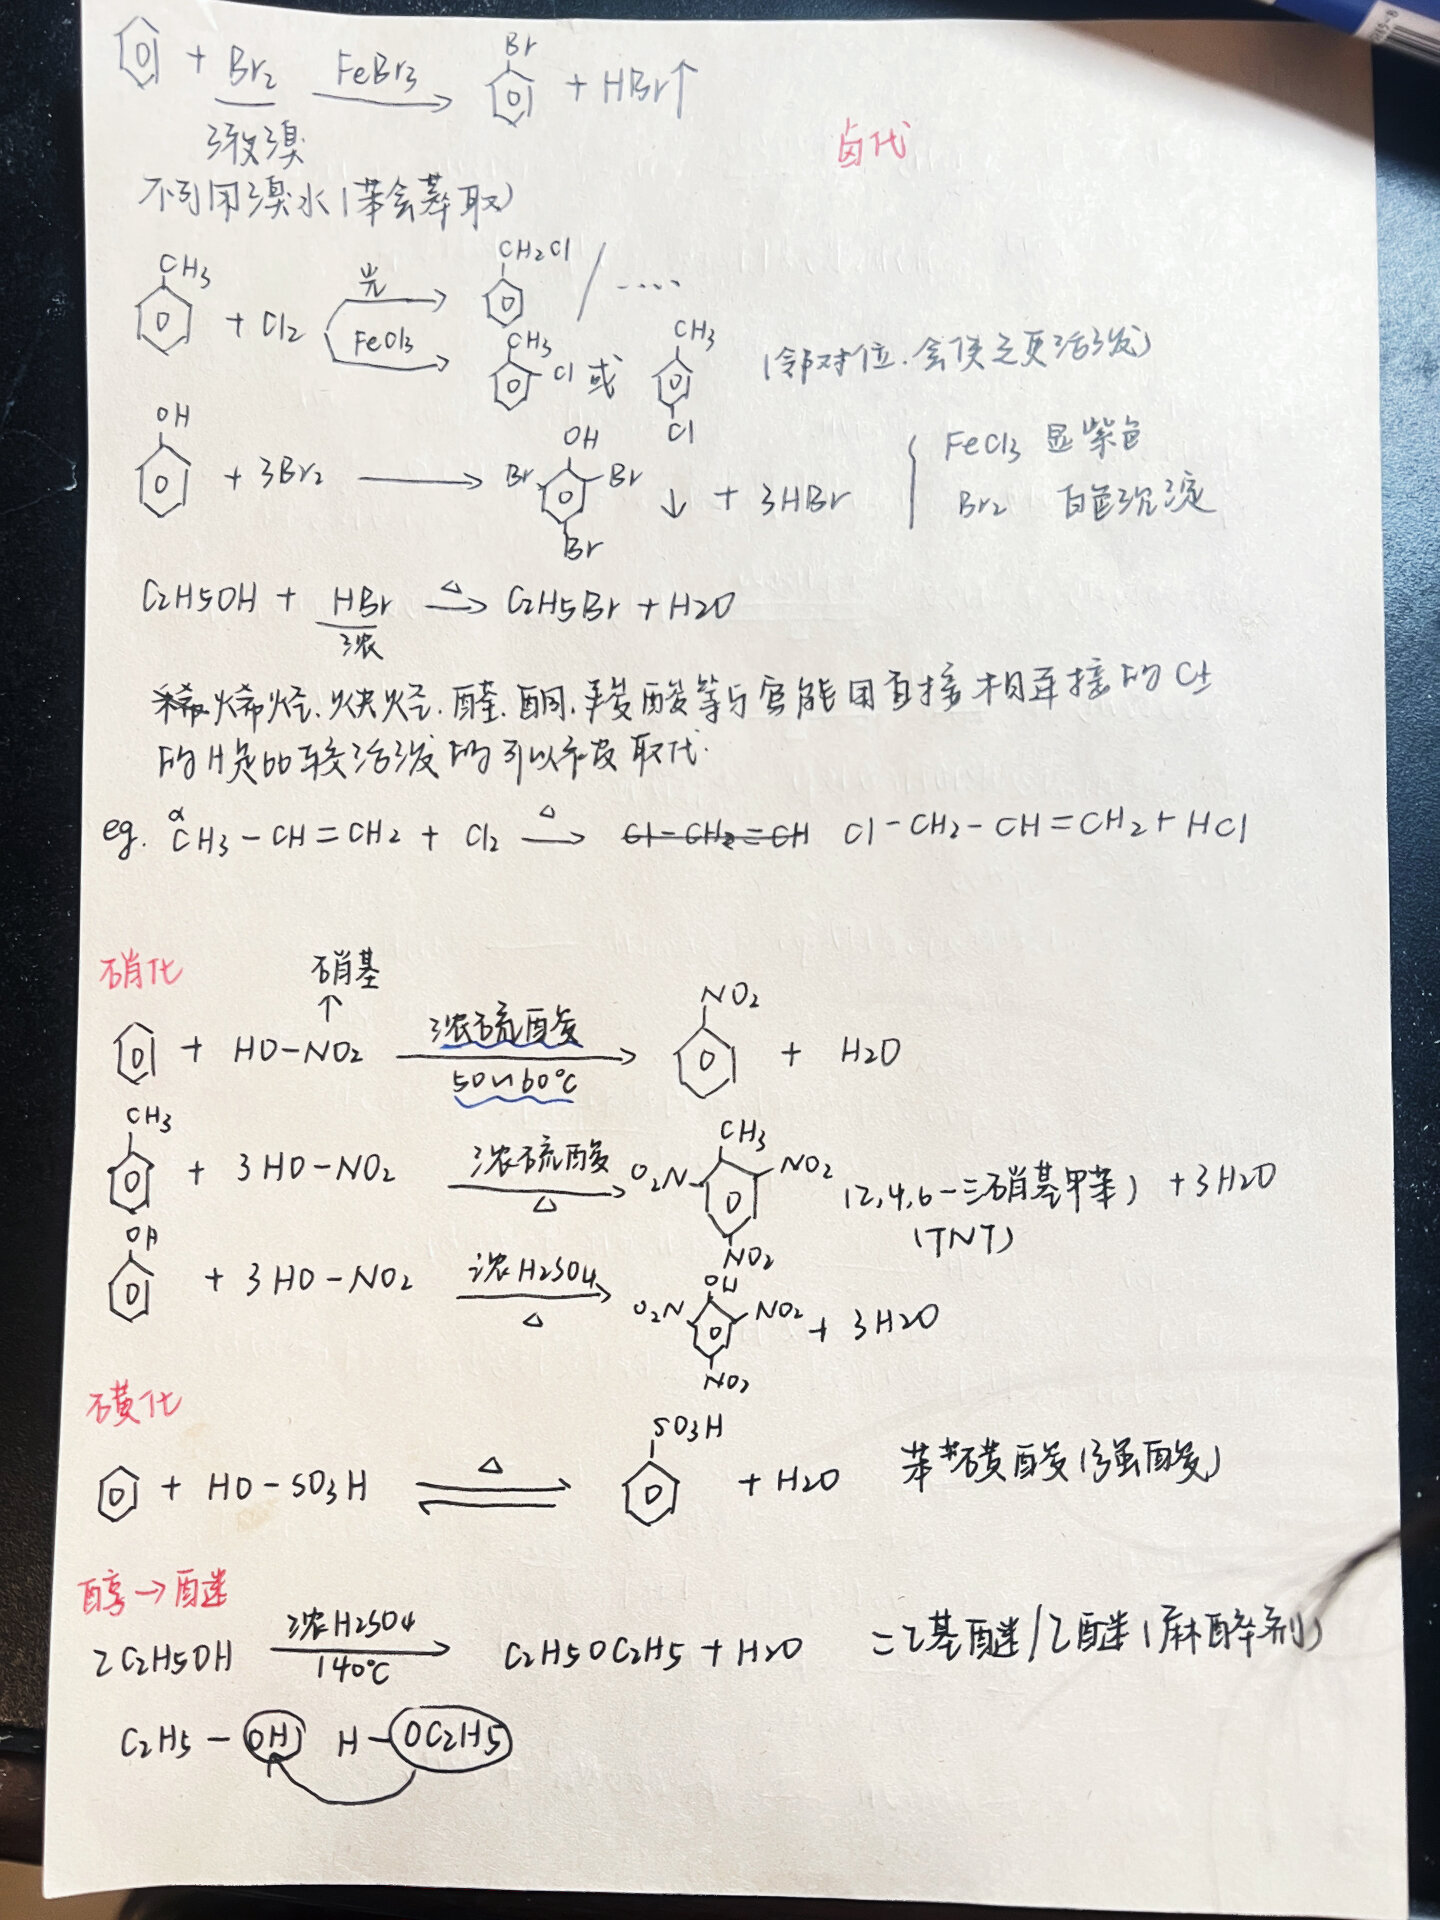 + Br2 FeBr3 Br + HBr↑
液溴
卤代
不可用溴水(苯会萃取)
CH3 + Cl2 光 CH2Cl / ....
FeCl3 CH3 Cl 或 CH3 Cl (邻对位.会使之更活泼)
OH + 3Br2 → OH Br Br Br ↓ + 3HBr
FeCl3 显紫色
Br2 白色沉淀
C2H5OH + HBr △→ C2H5Br + H2O
浓
烯烃.炔烃.醛.酮.羧酸等与官能团直接相连接的C上
的H是比较活泼的可以被取代.
eg. αCH3-CH=CH2 + Cl2 △→ Cl-CH2=CH Cl-CH2-CH=CH2+HCl
硝化
硝基
↑
+ HO-NO2 浓硫酸 50~60°C NO2 + H2O
CH3 + 3HO-NO2 浓硫酸 △ CH3 O2N NO2 NO2 (2,4,6-三硝基甲苯) +3H2O
(TNT)
OH + 3HO-NO2 浓H2SO4 △ OH O2N NO2 NO2 + 3H2O
磺化
+ HO-SO3H △ SO3H + H2O 苯磺酸(强酸)
醇→醚
2C2H5OH 浓H2SO4 140°C C2H5OC2H5 + H2O 二乙基醚/乙醚(麻醉剂)
C2H5-OH H-OC2H5